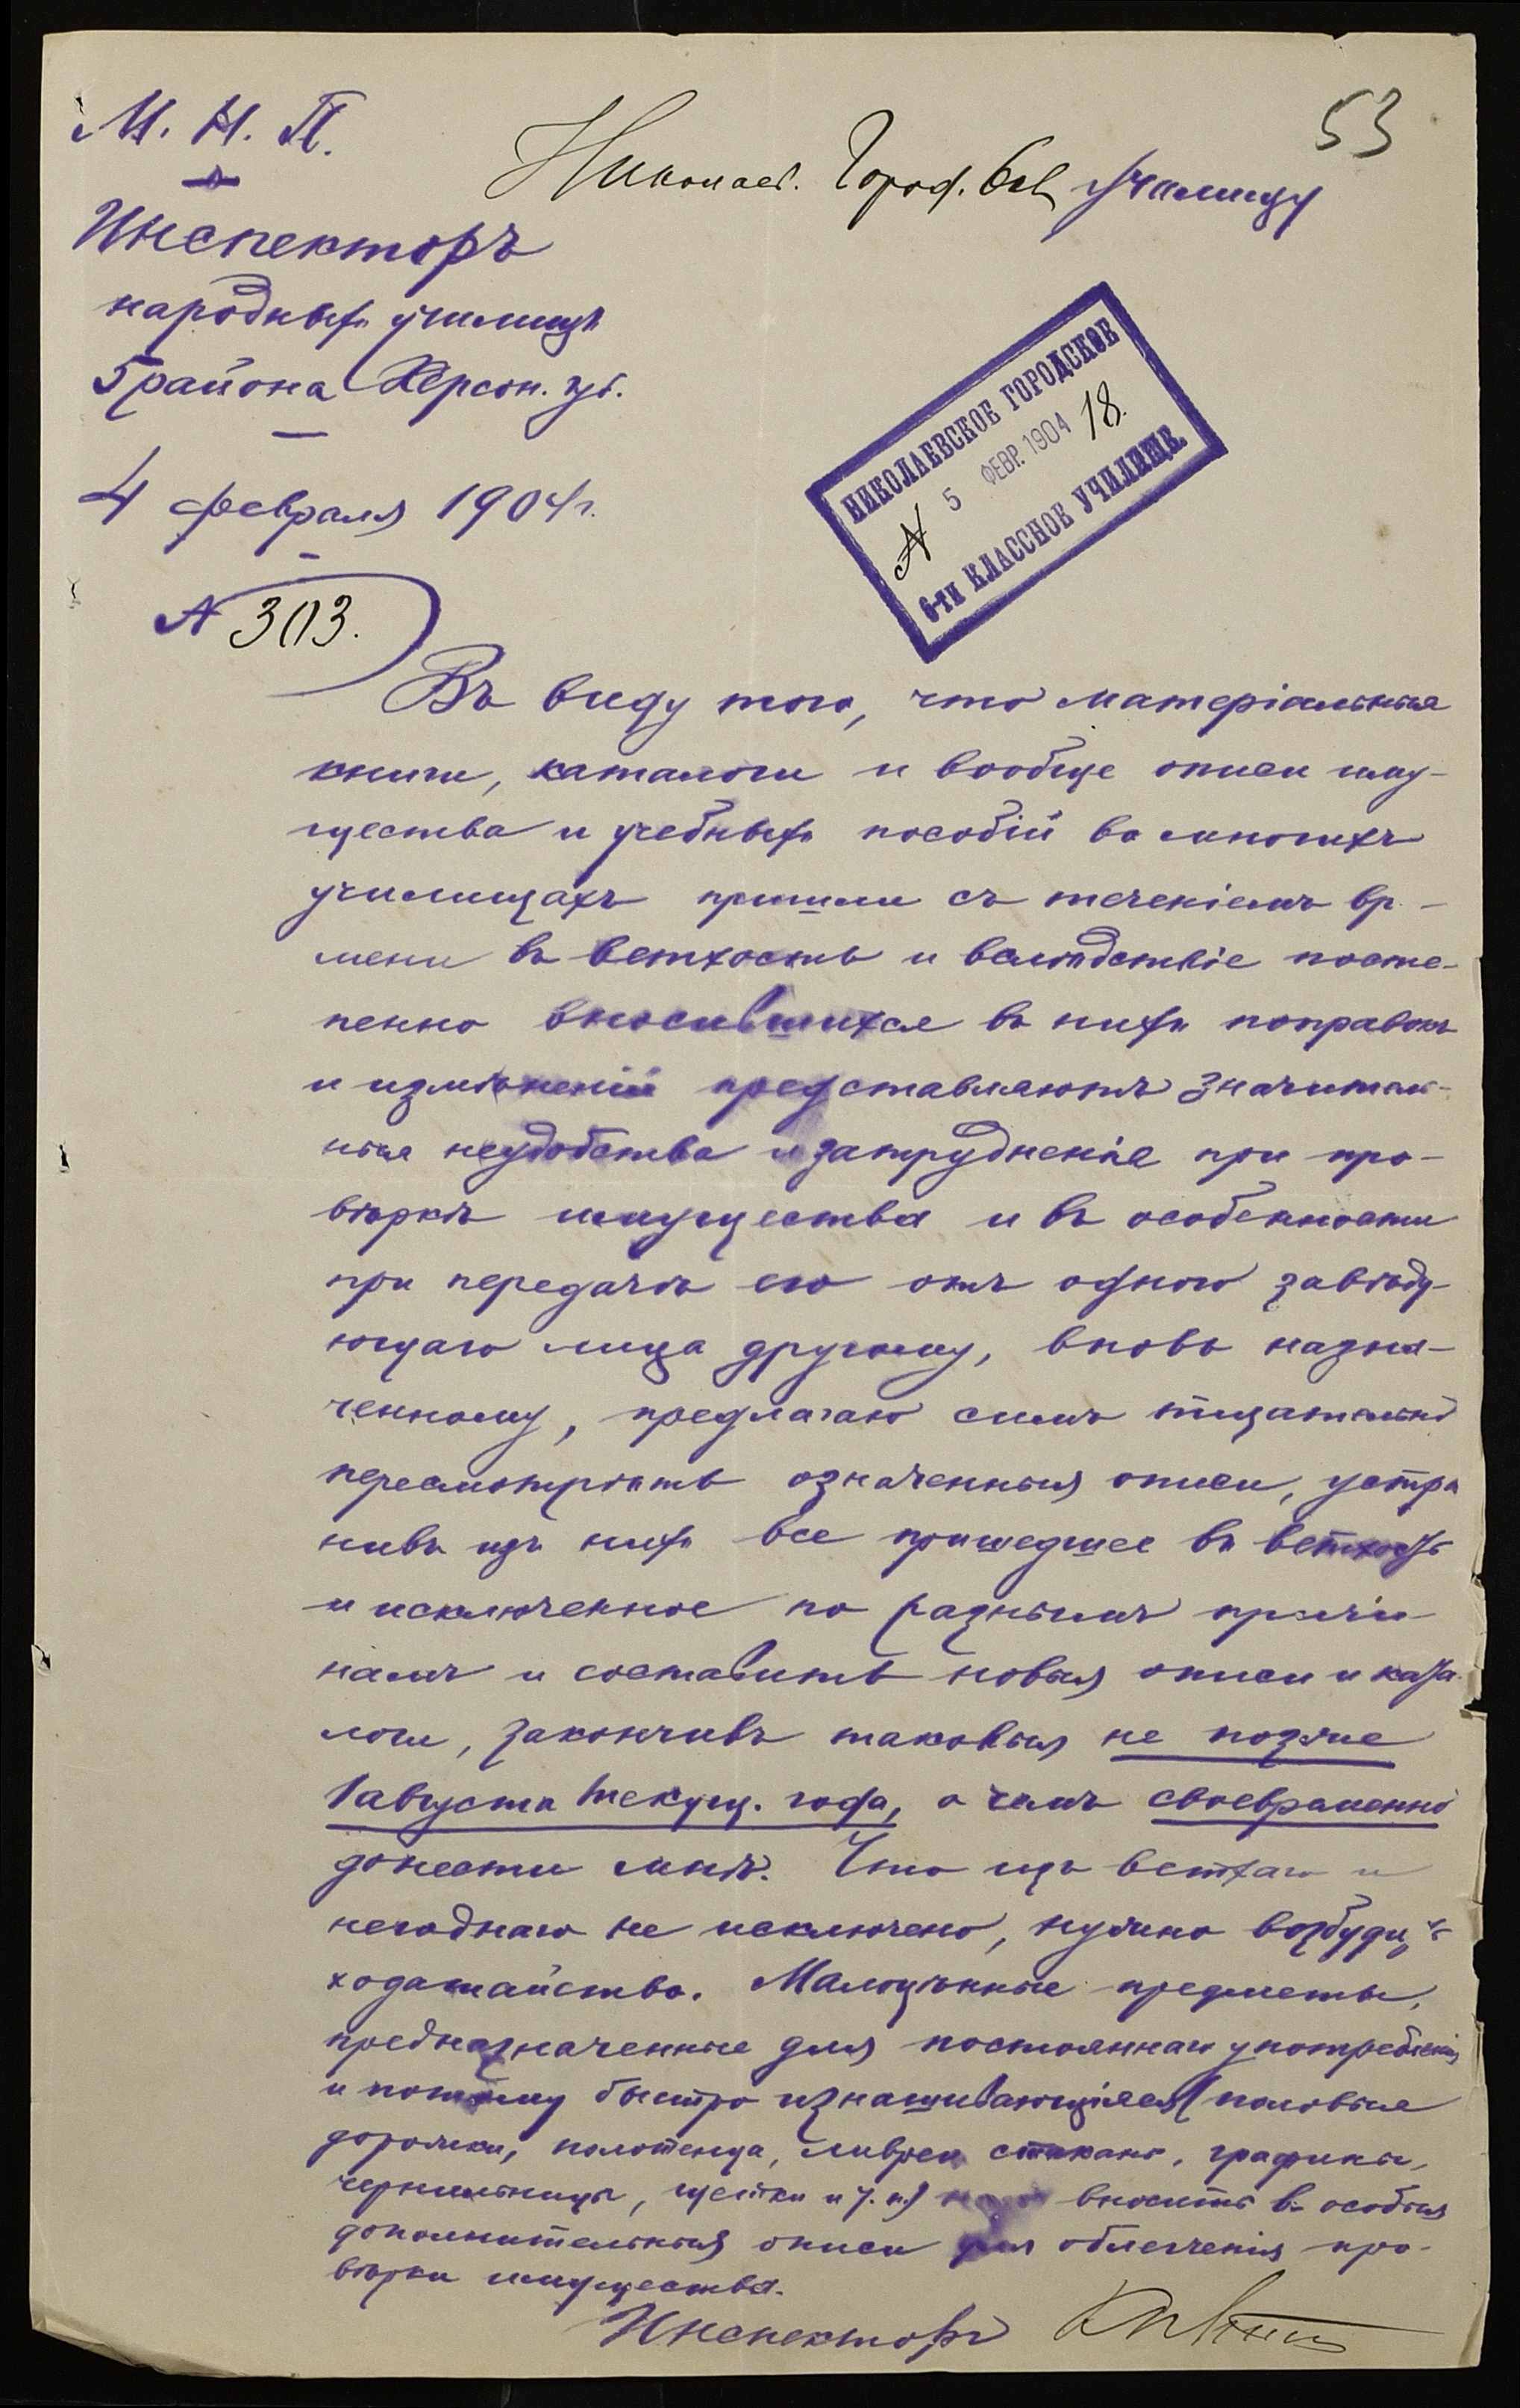 53
М. Н. П.
Инспекторъ
народныхъ училищъ
5 района Херсон. губ.
4 февраля 1904 г.
N 303.
Николаев. Город. 6 кл училищу
НИКОЛАЕВСКОЕ ГОРОДСКОЕ
N 5 ФЕВР. 1904 18.
6-ТИ КЛАССНОЕ УЧИЛИЩЕ.
Въ виду того, что матеріальныя
книги, каталоги и вообще описи иму-
щества и учебныхъ пособій во многихъ
училищахъ пришли съ теченіемъ вр-
мени въ ветхость и вслѣдствіе посте-
пенно вносившихся въ нихъ поправокъ
и измѣненій представляютъ значитель-
ныя неудобства и затрудненіе при про-
вѣркѣ имущества и въ особенности
при передачѣ его отъ одного завѣду-
ющаго лица другому, вновь назна-
ченному, предлагаю симъ тщательно
пересмотрѣть означенныя описи, устра
нивъ изъ нихъ все пришедшее въ ветхость
и исключенное по разнымъ причи-
намъ и составить новыя описи и ката-
логи, закончивъ таковыя не позже
1 августа текущ. года, о чемъ своевременно
донести мнѣ. Что изъ ветхаго и
негоднаго не исключено, нужно возбудить
ходатайство. Малоцѣнные предметы,
предназначенные для постояннаго употребленія
и потому быстро изнашивающіяся (половыя
дорожки, полотенца, ливреи, стаканы, графины,
чернильницы, щетки и т. п.) вносить въ особыя
дополнительныя описи для облегченія про-
вѣрки имущества.
Инспекторъ